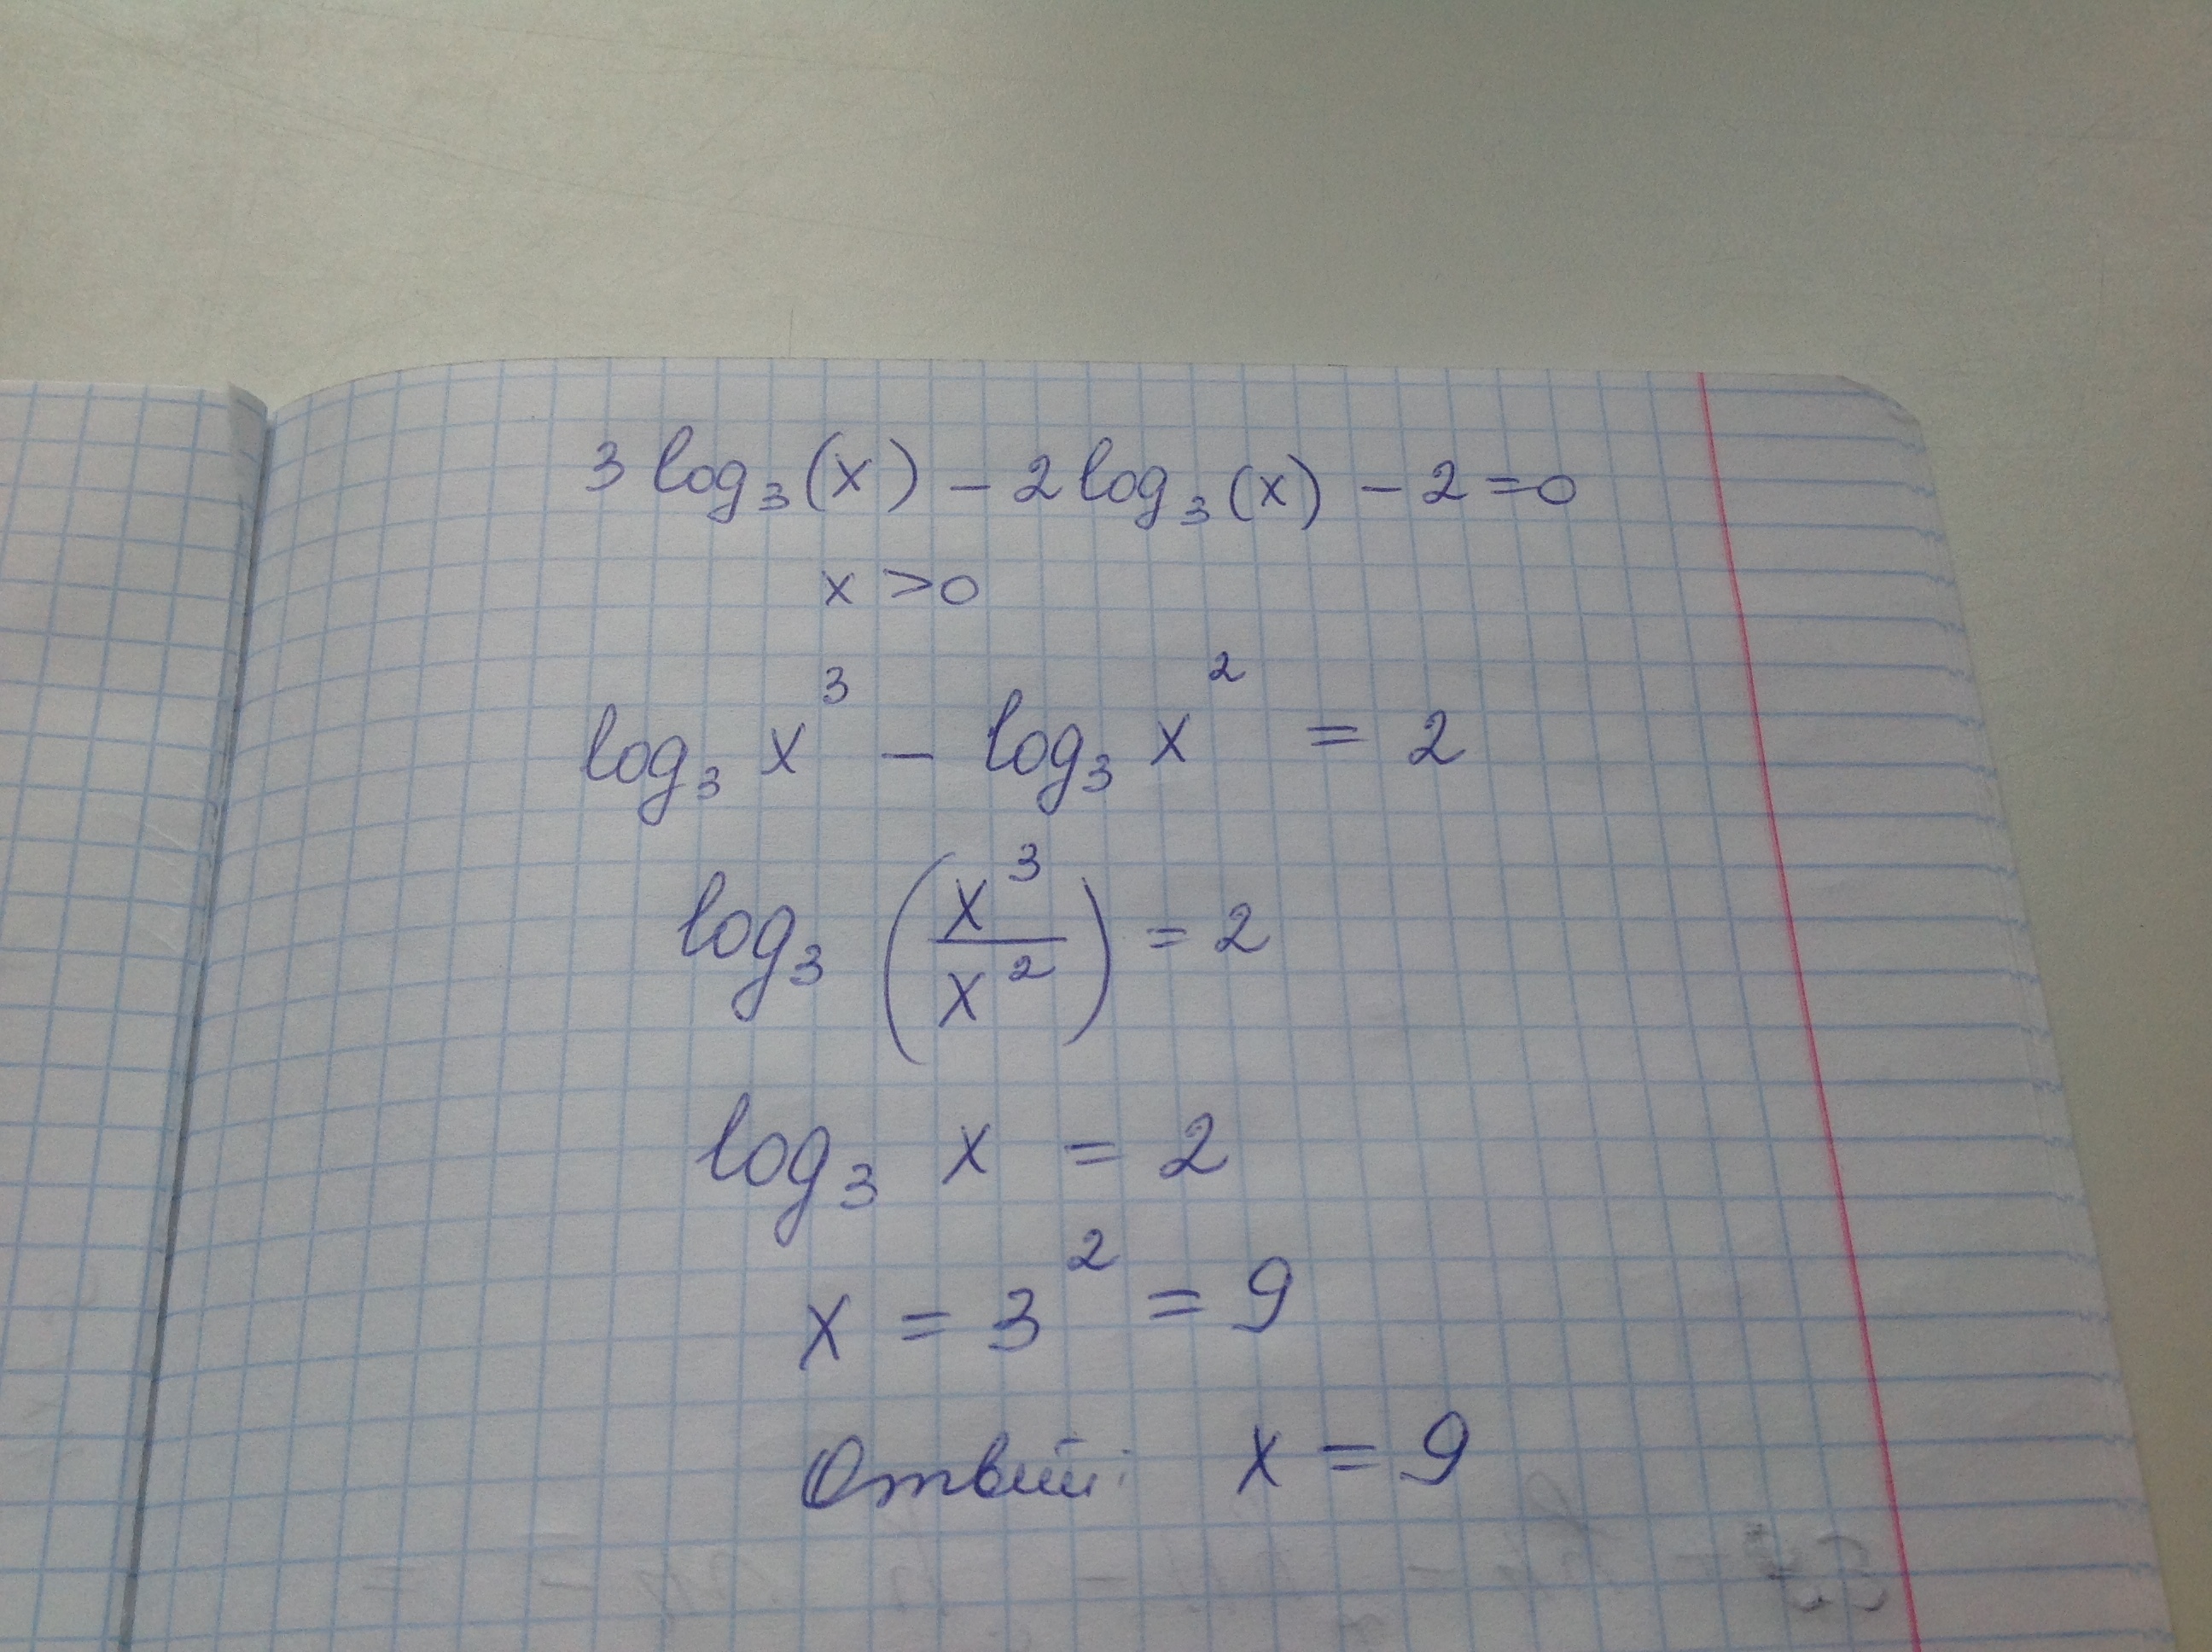 3 log₃(x) - 2 log₃(x) - 2 = 0
x > 0
log₃ x³ - log₃ x² = 2
log₃ (x³/x²) = 2
log₃ x = 2
x = 3² = 9
Ответ: x = 9